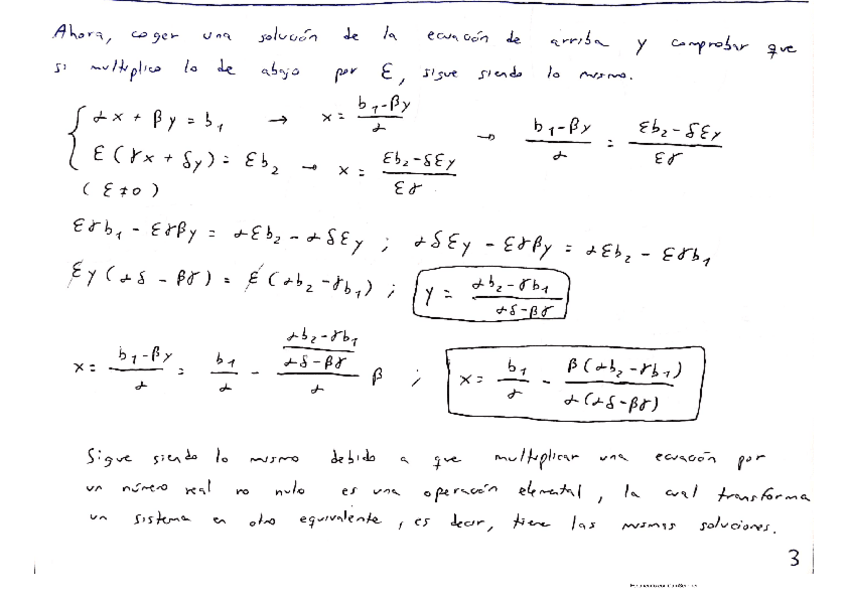 Ahora, coger una solución de la ecuación de arriba y comprobar que
si multiplico lo de abajo por ε, sigue siendo lo mismo.
{ αx + βy = b₁ → x = (b₁-βy)/α
{ ε(γx + δy) = εb₂ → x = (εb₂-δεy)/(εγ) → (b₁-βy)/α = (εb₂-δεy)/(εγ)
(ε≠0)
εγb₁ - εγβy = αεb₂ - αδεy ; αδεy - εγβy = αεb₂ - εγb₁
εy(αδ - βγ) = ε(αb₂-γb₁) ; y = (αb₂-γb₁)/(αδ-βγ)
x = (b₁-βy)/α = b₁/α - ((αb₂-γb₁)/(αδ-βγ))/α β ; x = b₁/α - β(αb₂-γb₁)/(α(αδ-βγ))
Sigue siendo lo mismo debido a que multiplicar una ecuación por
un número real no nulo es una operación elemental, la cual transforma
un sistema en otro equivalente, es decir, tiene las mismas soluciones.
3